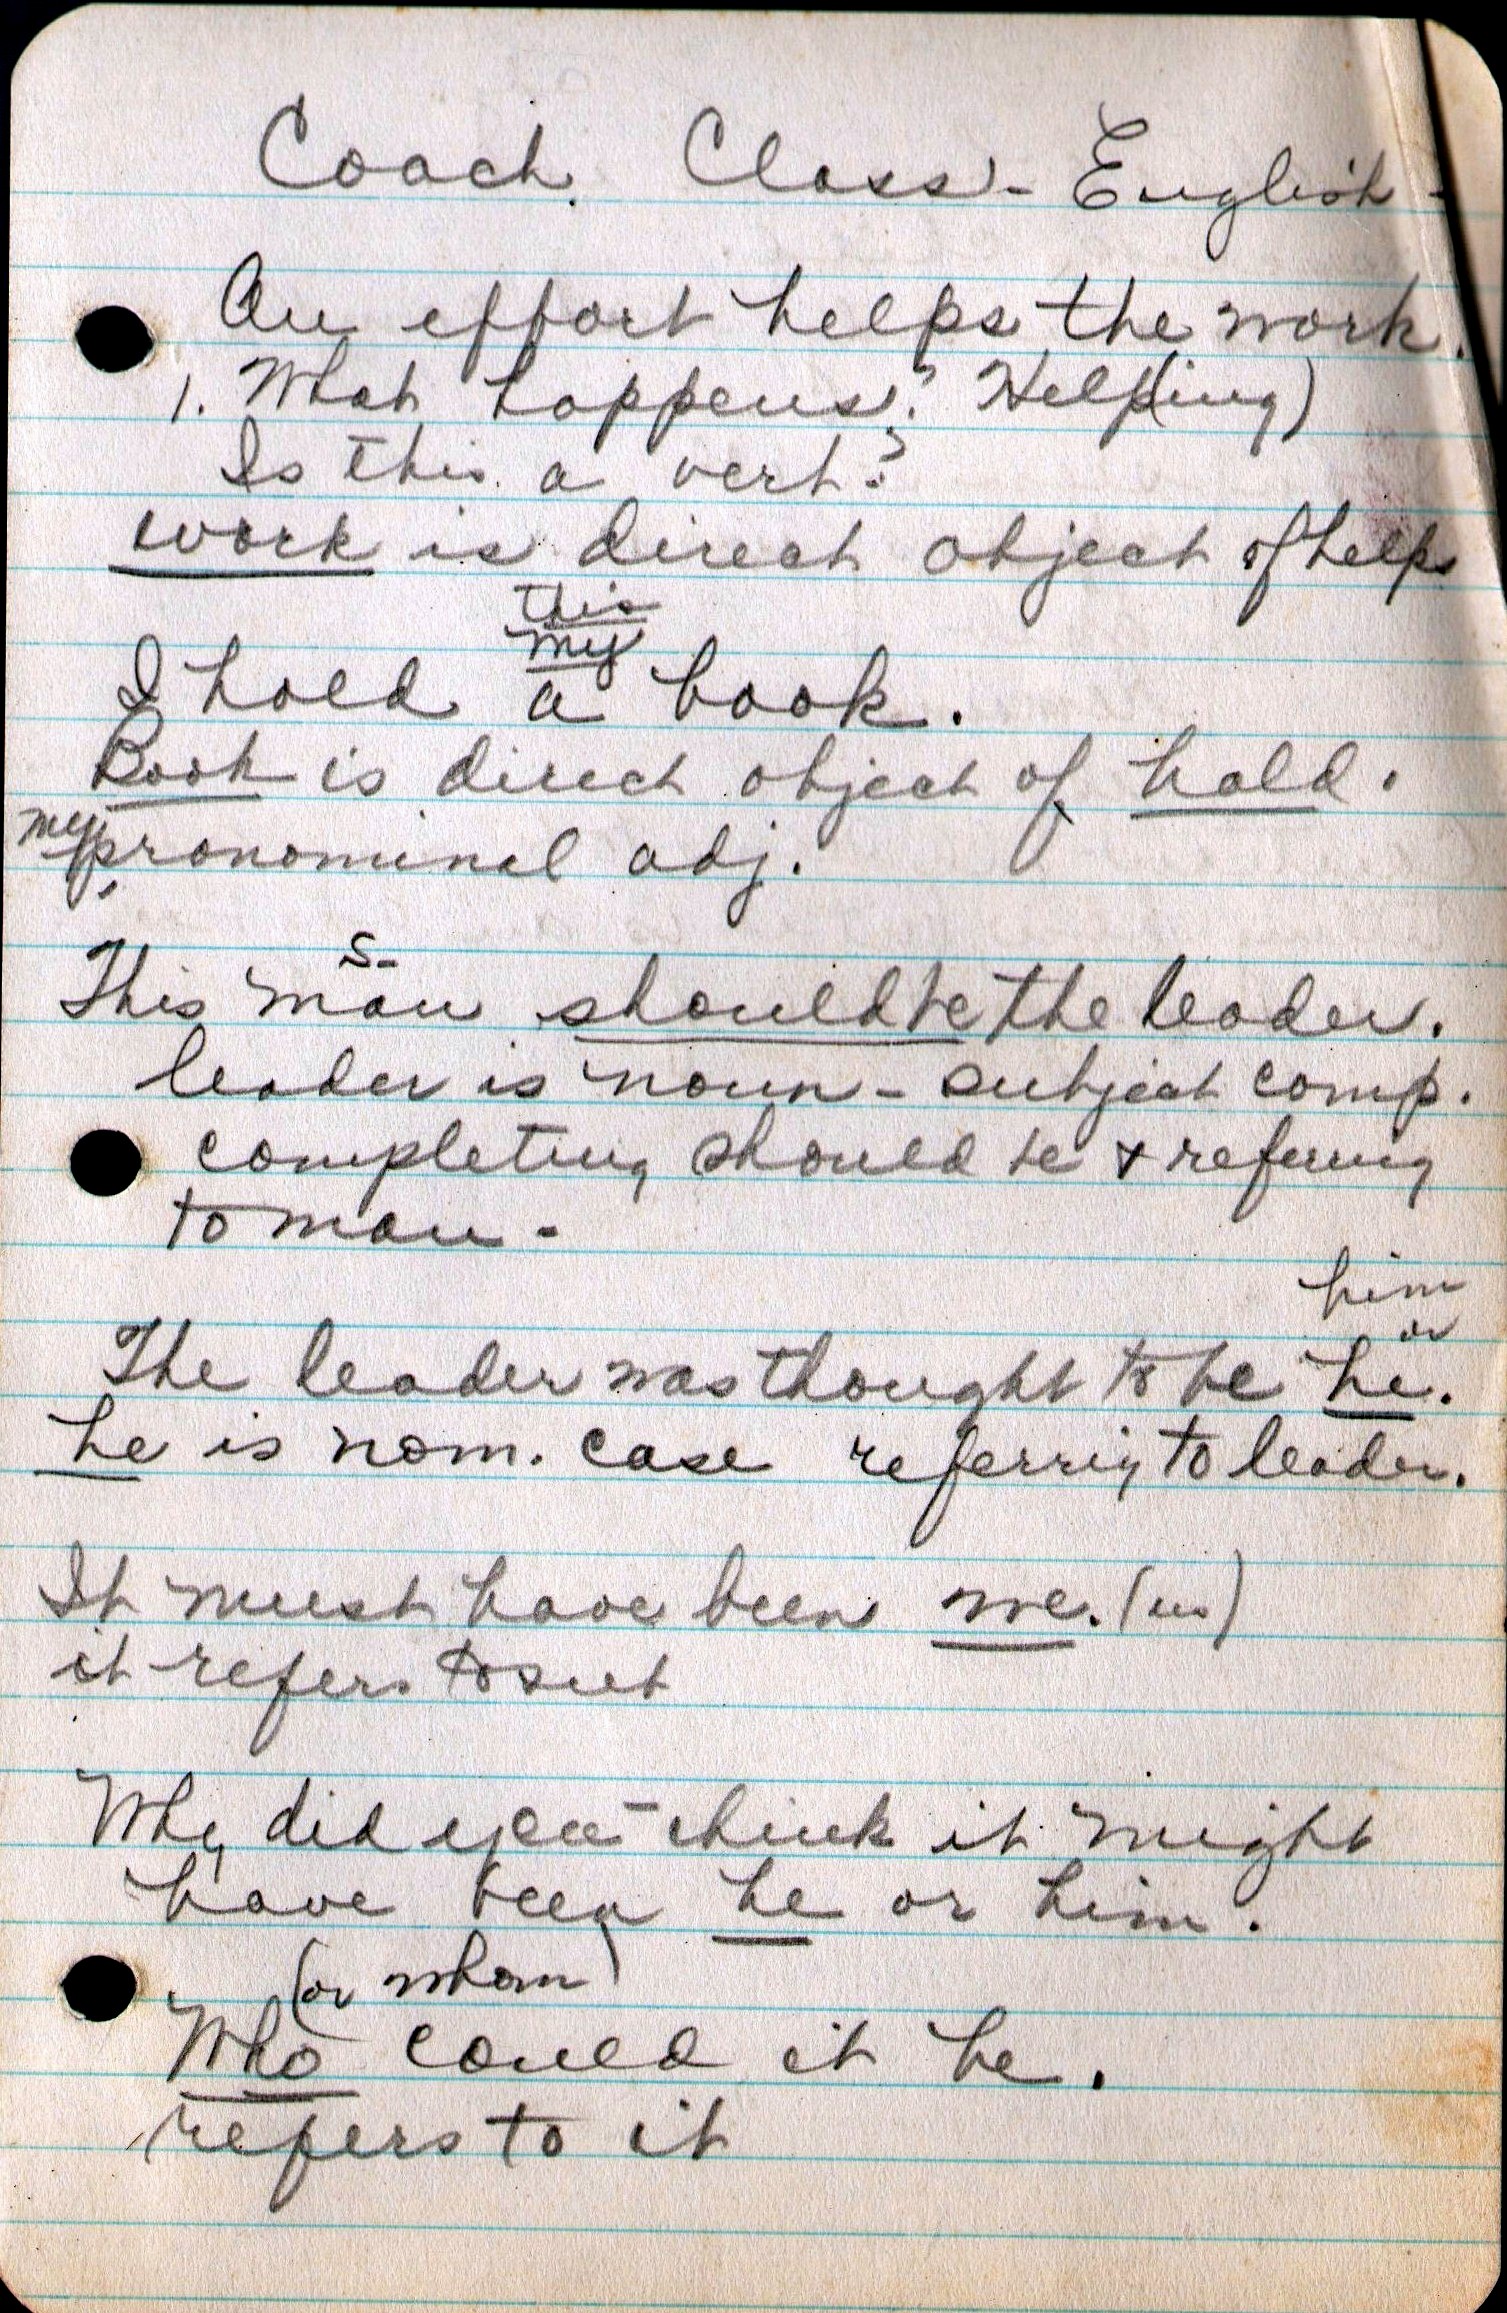 Coach Class - English -
An effort helps the work.
1. What happens? Help(ing)
Is this a verb?
work is direct object of helps
this
my
I hold a book.
Book is direct object of hold.
my pronominal adj.
S-
This man should be the leader.
leader is noun - subject comp.
completing should be & referring
to man -
him
or
The leader was thought to be he.
he is nom. case referring to leader.
It must have been me. (us)
it refers to sub
Why did you think it might
have been he or him.
(or whom)
Who could it be.
refers to it